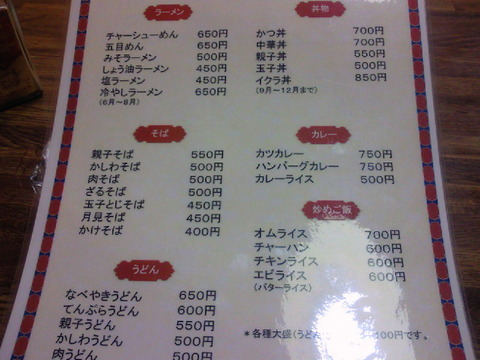 ラーメン
チャーシューめん 650円
五目めん 650円
みそラーメン 500円
しょう油ラーメン 450円
塩ラーメン 450円
冷やしラーメン 650円
(6月～8月)
そば
親子そば 550円
かしわそば 500円
肉そば 500円
ざるそば 500円
玉子とじそば 450円
月見そば 450円
かけそば 400円
うどん
なべやきうどん 650円
てんぷらうどん 600円
親子うどん 550円
かしわうどん 500円
肉うどん 500円
丼物
かつ丼 700円
中華丼 700円
親子丼 550円
玉子丼 500円
イクラ丼 850円
(9月～12月まで)
カレー
カツカレー 750円
ハンバーグカレー 750円
カレーライス 500円
炒めご飯
オムライス 700円
チャーハン 600円
チキンライス 600円
エビライス 600円
(バターライス)
*各種大盛(うどん 100円です。